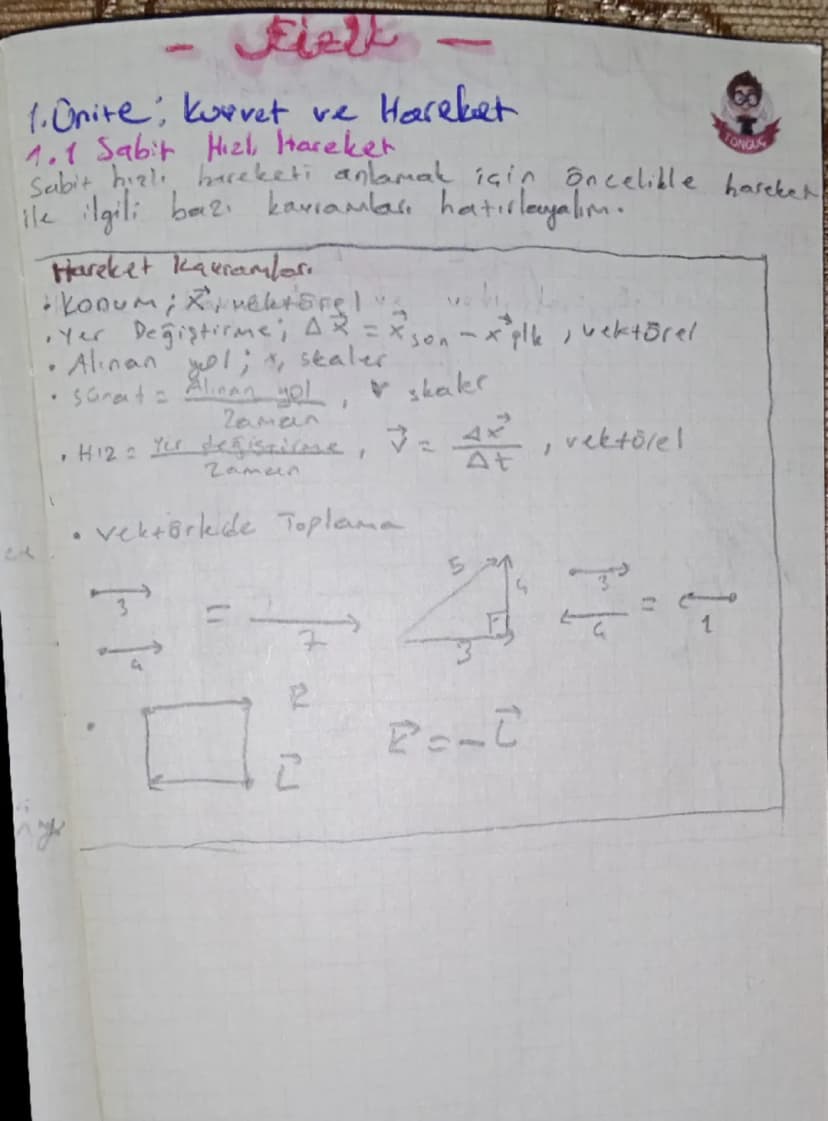 - Fizik -
TONGUÇ
1. Ünite; Kuvvet ve Hareket
1.1 Sabit Hızlı Hareket
Sabit hızlı hareketi anlamak için öncelikle hareket
ile ilgili bazı kavramları hatırlayalım.
Hareket Kavramları
• Konum; x⃗, vektörel
• Yer Değiştirme; Δx⃗ = x⃗son - x⃗ilk, vektörel
• Alınan yol; x, skaler
• Sürat = Alınan yol / Zaman, v skaler
• Hız = Yer değiştirme / Zaman, v⃗ = Δx⃗ / Δt, vektörel
• Vektörlerde Toplama
3 4 = 7
5 4 3
3 4 = 1
• K⃗ L⃗ K⃗ = -L⃗